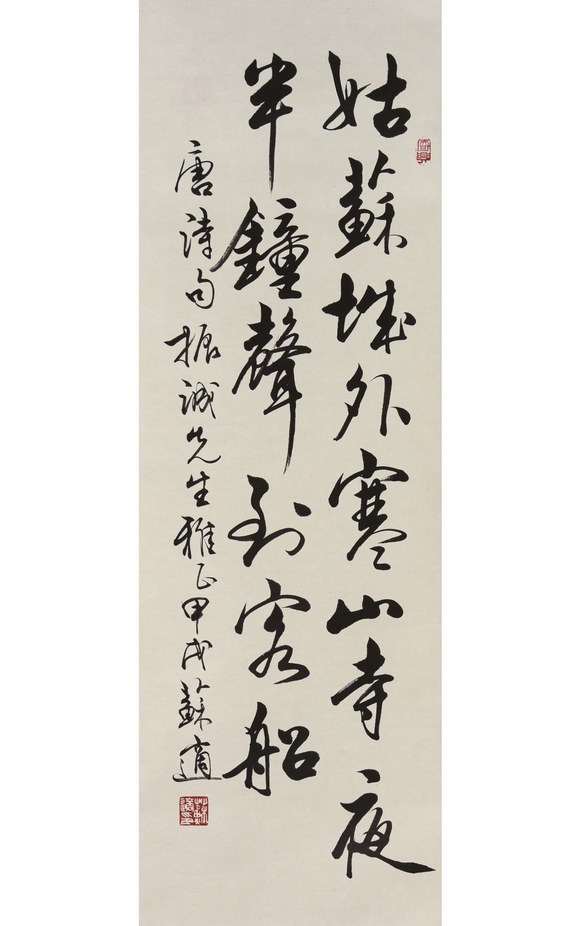 姑蘇城外寒山寺夜
半鐘聲到客船
唐詩句振誠先生雅正甲戌蘇適